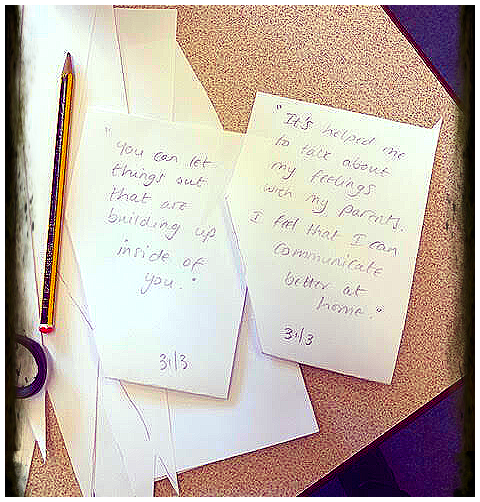 "
you can let
things out
that are
building up
inside of
you."
31/3
"It's helped me
to talk about
my feelings
with my parents.
I feel that I can
communicate
better at
home."
31/3